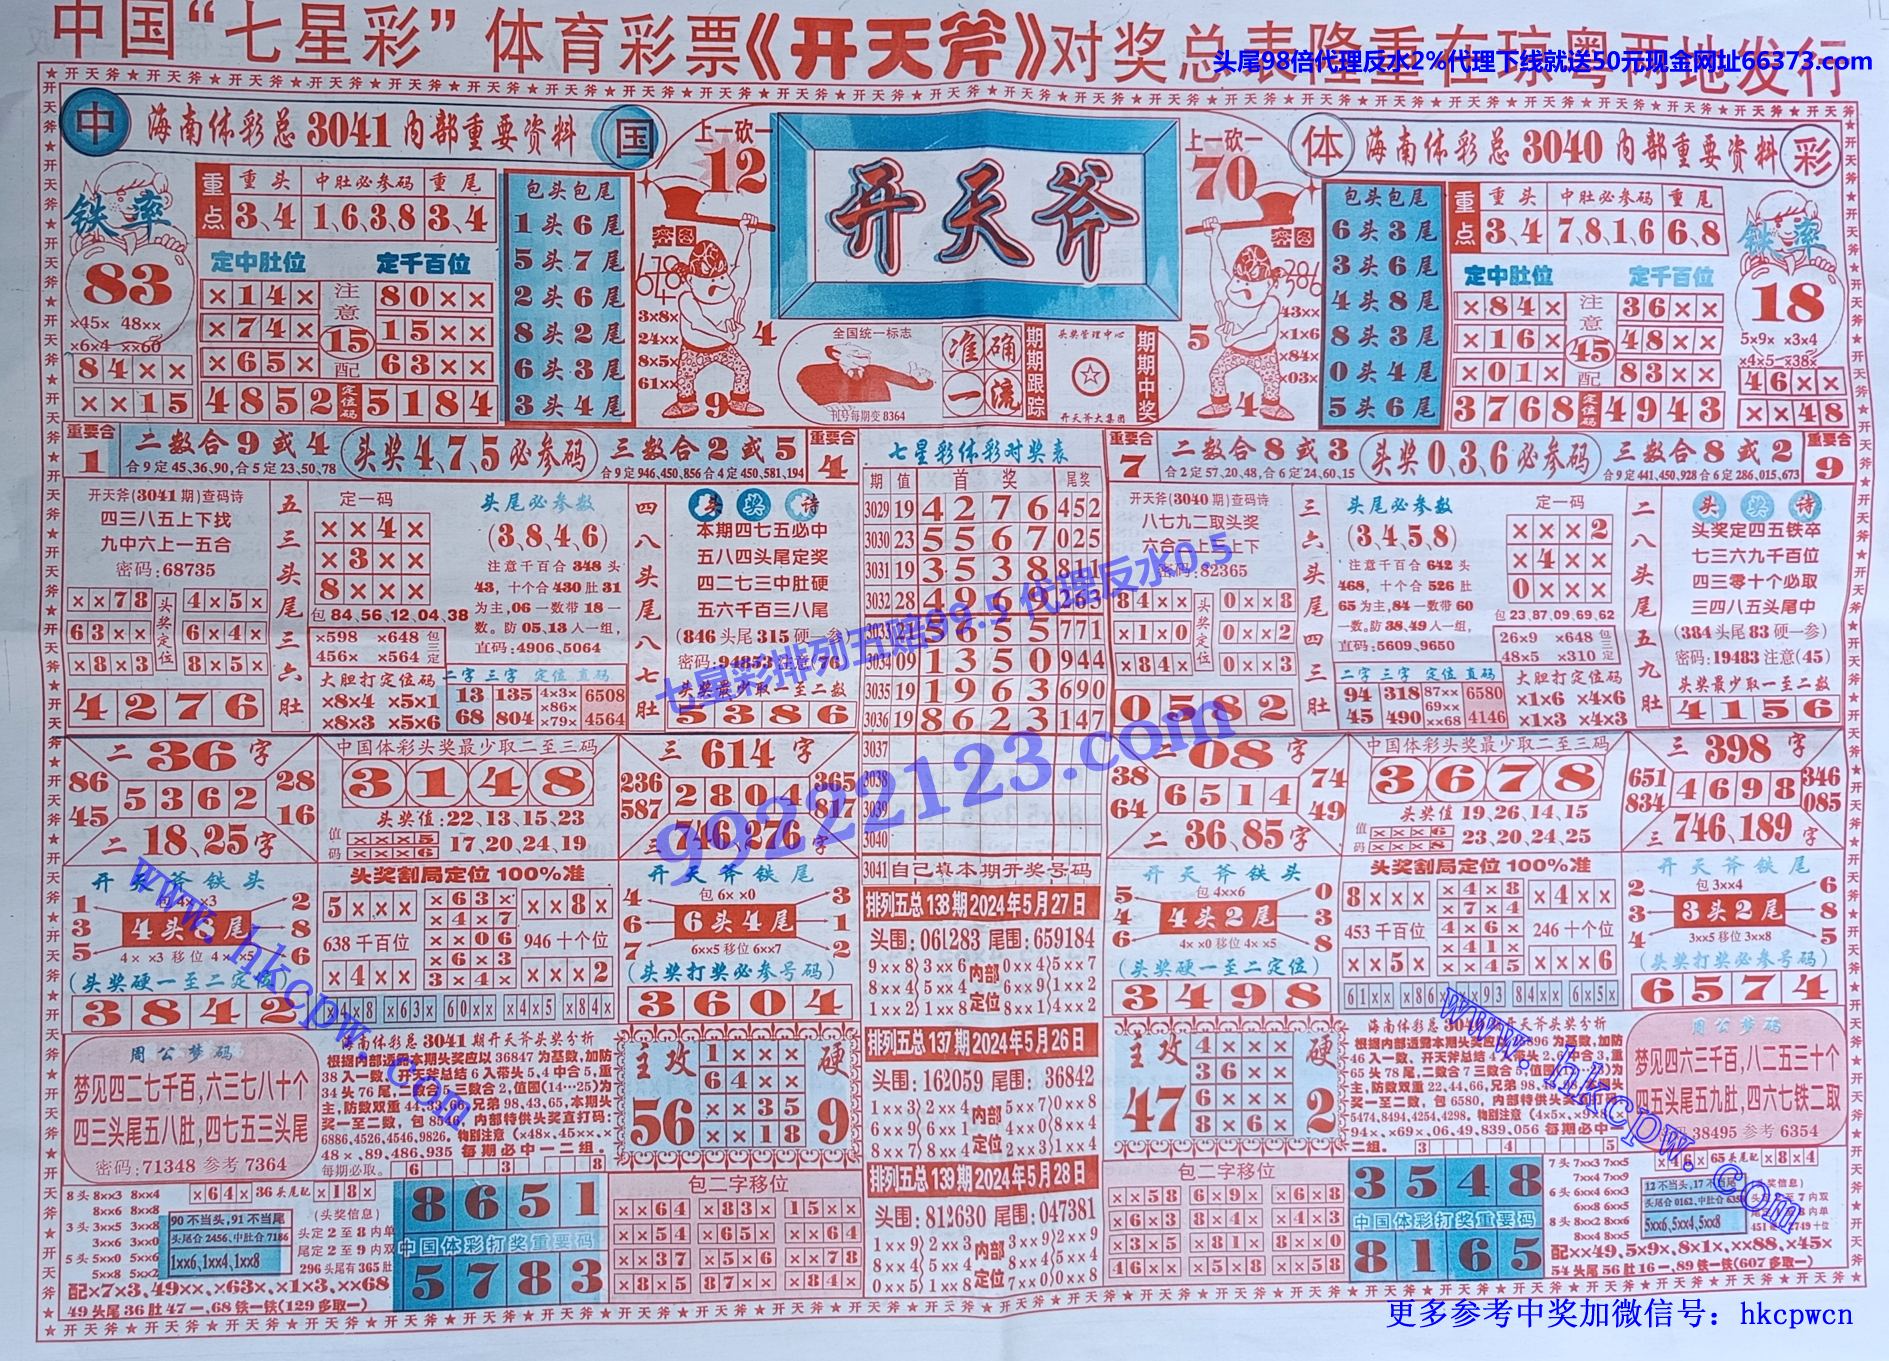 中国“七星彩”体育彩票《开天斧》对奖总表隆重在琼粤两地发行
头尾98倍代理反水2%代理下线就送50元现金网址66373.com
中 海南体彩总3041内部重要资料 国
上一砍一
12
开天斧
上一砍一
70
体 海南体彩总3040内部重要资料 彩
铁率
83
×45× 48××
×6×4 ××60
84××
××15
重点
重头 中肚必参码 重尾
3、4 1、6、3、8 3、4
定中肚位 定千百位
×14× 注意 80××
×74× 15 15××
×65× 配 63××
4852 定位码 5184
包头包尾
1头6尾
5头7尾
2头6尾
8头2尾
6头3尾
3头4尾
密图
3×8×
24××
8×5×
61××
4
9
全国统一标志
刊号每期变8364
准确一流
期期跟踪
头奖管理中心
开天斧大集团
期期中奖
密图
43××
×1×6
×84×
×03×
5
4
包头包尾
6头3尾
3头6尾
4头8尾
8头3尾
0头4尾
5头6尾
重点
重头 中肚必参码 重尾
3、4 7、8、1、6 6、8
定中肚位 定千百位
×84× 注意 36××
×16× 45 48××
×01× 配 83××
3768 定位码 4943
铁率
18
5×9× ×3×4
×4×5 ×38×
46××
××48
重要合
1
二数合9或4
合9定45,36,90,合5定23,50,78
头奖4、7、5必参码
三数合2或5
合9定946,450,856合4定450,581,194
重要合
4
七星彩体彩对奖表
重要合
7
二数合8或3
合2定57,20,48,合6定24,60,15
头奖0、3、6必参码
三数合8或2
合9定441,450,928合6定286,015,673
重要合
9
开天斧(3041期)查码诗
四三八五上下找
九中六上一五合
密码:68735
××78 头奖定位 4×5×
63×× 6×4×
×8×3 8×5×
4276
五三头尾三六肚
定一码
××4×
×3××
8×××
包84,56,12,04,38
×598 ×648
456× ×564
包三定
大胆打定位码
×8×4 ×5×1
×8×3 ×5×6
头尾必参数
(3、8、4、6)
注意千百合348头
43,十个合430肚31
为主,06一数带18一
数。防05,13人一组,
直码:4906、5064
二字 三字 定位 直码
13 135 4×3× 6508
×86×
68 804 ×79× 4564
四八头尾八七肚
头奖诗
本期四七五必中
五八四头尾定奖
四二七三中肚硬
五六千百三八尾
(846头尾315硬一参)
密码:94853注意(76)
头奖最少取一至二数
5386
期 值 首奖 尾奖
3029 19 4276 452
3030 23 5567 025
3031 19 3538 811
3032 28 4969 263
3033 21 5655 771
3034 09 1350 944
3035 19 1963 690
3036 19 8623 147
3037
3038
3039
3040
3041 自己填本期开奖号码
七星彩排列五赔99.5 代理反水0.5
99222123.com
开天斧(3040期)查码诗
八七九二取头奖
六合二上三上下
密码:82365
84×× 头奖定位 0××8
×1×0 0××2
×84× 0××3
0582
三六头尾四三肚
头尾必参数
(3、4、5、8)
注意千百合642头
468,十个合526肚
65为主,84一数带60
一数。防38,49人一组,
直码:5609、9650
二字 三字 定位 直码
94 318 87×× 6580
69××
45 490 ××68 4146
定一码
×××2
×4××
0×××
包23,87,09,69,62
26×9 ×648
48×5 ×310
包三定
大胆打定位码
×1×6 ×4×6
×1×3 ×4×3
二八头尾五九肚
头奖诗
头奖定四五铁卒
七三六九千百位
四三零十个必取
三四八五头尾中
(384头尾83硬一参)
密码:19483注意(45)
头奖最少取一至二数
4156
二 36 字
86 28
5362
45 16
二 18、25 字
中国体彩头奖最少取二至三码
3148
头奖值:22、13、15、23
值码 ×××5 ×××6 17、20、24、19
三 614 字
236 365
2804
587 817
三 746、276 字
二 08 字
38 74
6514
64 49
二 36、85 字
中国体彩头奖最少取二至三码
3678
头奖值19、26、14、15
值码 ×××6 ×××8 23、20、24、25
三 398 字
651 346
4698
834 085
三 746、189 字
开天斧铁头
包4××3
1 2
3 4头8尾 8
5 6
4××3移位4××5
(头奖硬一至二定位)
3842
头奖割局定位100%准
5××× ×63× ××8×
×4×7
638千百位 ××06 946十个位
×6×3
×4×× 3×4× ×××2
×4×8 ×63× 60×× ×4×5 ×84×
开天斧铁尾
包6××0
4 3
6 6头4尾 1
7 2
6××5移位6××7
(头奖打奖必参号码)
3604
排列五总138期2024年5月27日
头围:061283 尾围:659184
9××8 3××6 内部 0××4 5××7
8××4 5××4 6××9 1××2
2××1 1××8 定位 8××1 4××2
排列五总137期2024年5月26日
头围:162059 尾围:36842
1××3 2××4 内部 5××7 0××8
6××9 6××1 4××0 8××4
8××7 8××4 定位 2××3 1××4
排列五总139期2024年5月28日
头围:812630 尾围:047381
1××9 2××3 内部 3××9 2××9
8××4 5××4 8××4 5××4
0××5 1××8 定位 7××0 0××8
开天斧铁头
包4××6
5 0
4 4头2尾 3
6 8
4××0移位4××5
(头奖硬一至二定位)
3498
头奖割局定位100%准
8××× ×4×8 ×4××
×7×4
453千百位 4×6× 246十个位
×41×
××5× ××45 ×××6
61×× ×86× ××93 84×× 6×5×
开天斧铁尾
包3××4
2 6
3 3头2尾 8
4 5
3××5移位3××8
(头奖打奖必参号码)
6574
周公梦码
梦见四二七千百,六三七八十个
四三头尾五八肚,四七五三头尾
密码:71348 参考7364
海南体彩总3041期开天斧头奖分析
根据内部透露本期头奖应以36847为基数,加防
38入一数、开天斧总结6入带头5,4中合5,重
34头76尾,二数合5三数合2,值围(14…25)为
主,防数双重44,33,66,兄弟98,43,65,本期头
奖一至二数,包8546,内部特供头奖直打码:
6886,4526,4546,9826,特别注意(×48×,45××,×
48×,89,486,935 每期必中一二组。
每期必取。 6 3 8
主攻
56
1×××
64××
××35
××18
硬
9
主攻
47
4×××
36××
6×××
8×6×
硬
2
周公梦码
梦见四六三千百,八二五三十个
四五头尾五九肚,四六七铁二取
密码38495参考6354
8头8××3 8××4
8××6 8××8
3头3××5 3××8
3××6 3××0
5头5××0 5××6
5××8 5××2
×64× 36头尾配 ×18×
90不当头,91不当尾
头尾合2456,中肚合7186
1××6,1××4,1××8
(头奖信息)
头定2至8内单
尾定2至9内双
296头尾有365肚
配×7×3、49××、×63×、×1×3、××68
49头尾36肚47一、68铁一铁(129多取一)
8651
中国体彩打奖重要码
5783
包二字移位
××64 ×83× 15××
××54 ×65× ××64
××37 ×5×6 ××78
×8×5 87×× ×84×
包二字移位
××58 6×9× ×6×8
×6×3 8×4× ×4×3
×3×5 ×81× 8××0
46×× ×5×8 ××58
3548
中国体彩打奖重要码
8165
7头7××3 7××5
7××4 7××9
6头6××4 6××3
6××8 6××5
8头8××2 8××6
8××5 8××5
×4×6 65头尾配 ×8×4
配××49、5×9×、8×1×、××88、×45×
54头尾56肚16一、89铁一铁(607多取一)
www.hkcpw.com
www.hkcpw.com
更多参考中奖加微信号：hkcpwcn